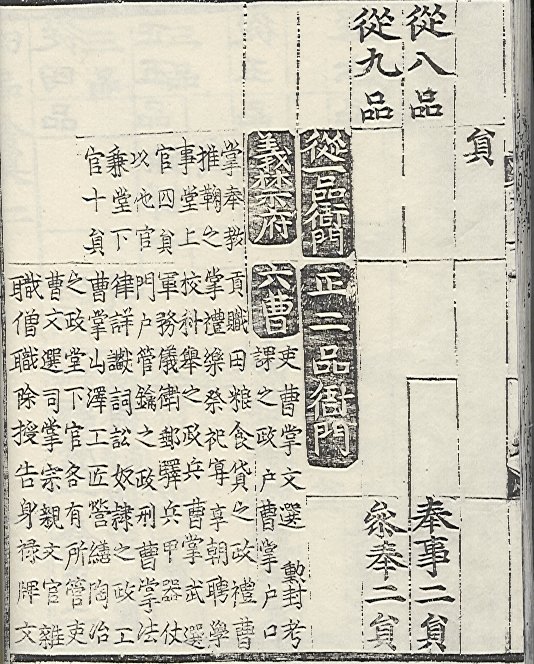 貟
從八品
奉事二貟
從九品
叅奉二貟
從一品衙門
義禁府
掌奉教
推鞫之
事堂上
官四貟
以他官
兼堂下
官十貟
正二品衙門
六曹
吏曹掌文選勲封考
課之政戶曹掌戶口
貢職田粮食貨之政禮曹
掌禮樂祭祀宴享朝聘學
校科舉之政兵曹掌武選
軍務儀衛郵驛兵甲器仗
門戶管鑰之政刑曹掌法
律詳讞詞訟奴隷之政工
曹掌山澤工匠營繕陶冶
之政堂下官各有所管吏
曹文選司掌宗親文官雜
職僧職除授告身祿牌文